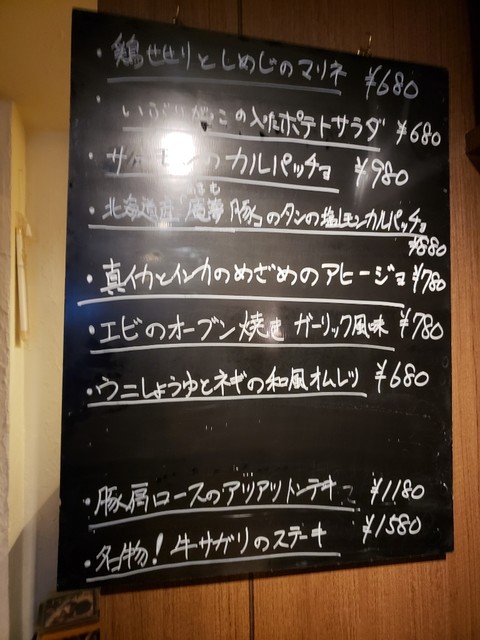 ・鶏せせりとしめじのマリネ ¥680
・いぶりがっこの入ったポテトサラダ ¥680
・サーモンのカルパッチョ ¥980
・北海道産「 豚」のタンの塩レモンカルパッチョ
¥880
・真イカとインカのめざめのアヒージョ ¥780
・エビのオーブン焼き ガーリック風味 ¥780
・ウニしょうゆとネギの和風オムレツ ¥680
・豚肩ロースのアツアツトンテキ ¥1180
・名物!牛サガリのステーキ ¥1580